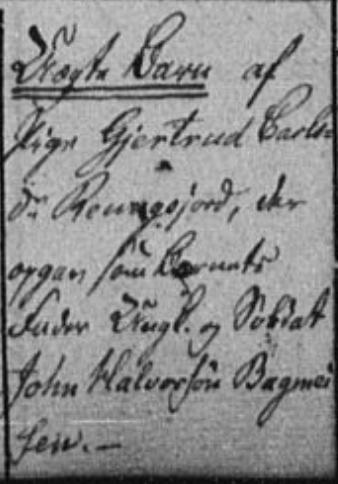 Uægte Barn af
Pige Gjertrud Carls=
dr. Roungsjord, der
opgav som Barnets
Fader Ungk. og Soldat
John Halvorsön Bagmoi
sen. —